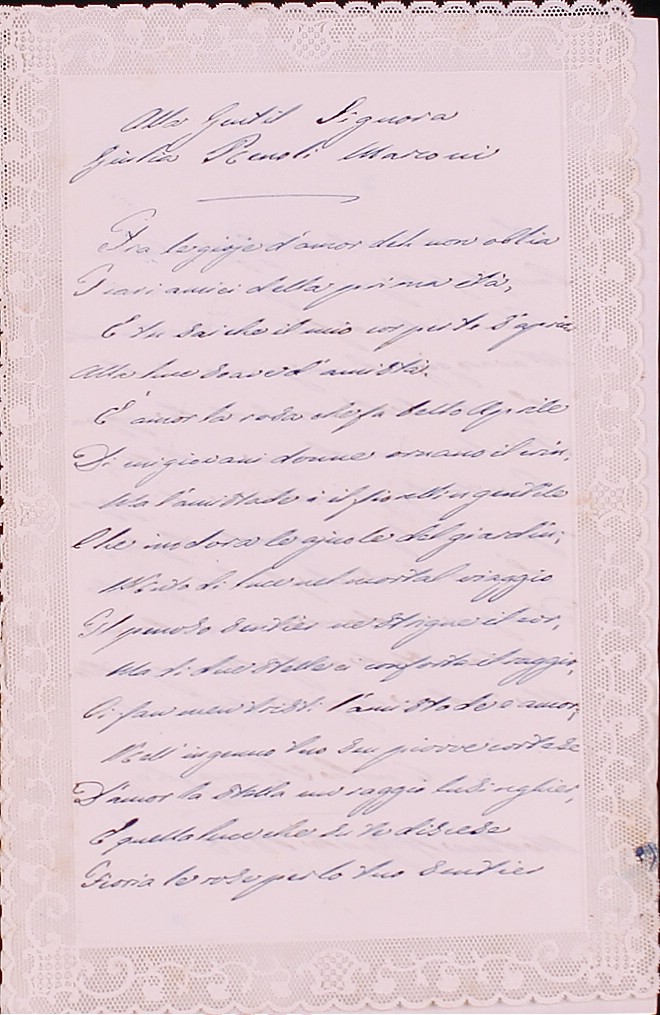 Alla Gentil Signora
Giulia Renoli Marconi
Fra le gioje d'amor deh non oblia
I cari amici della prima età,
E tu sai che il mio cor per te s'apria
Alla luce soave d'amistà.
È amor la rosa che fu dello Aprile
Di migiovani donne ornano il crin,
Ma l'amistade è il fiorellin gentile
Che indora le ajuole del giardin;
di luce nel mortal viaggio
Il penoso sentier ne strigne il cor,
Ma di due stelle ci conforta il raggio,
Ci fan men tristi l'amistade e amor;
Nell'ingenuo tuo sen piovve cortese
D'amor la stella un raggio lusinghier,
E quella luce che in te discese
Fioria le rose per lo tuo sentier